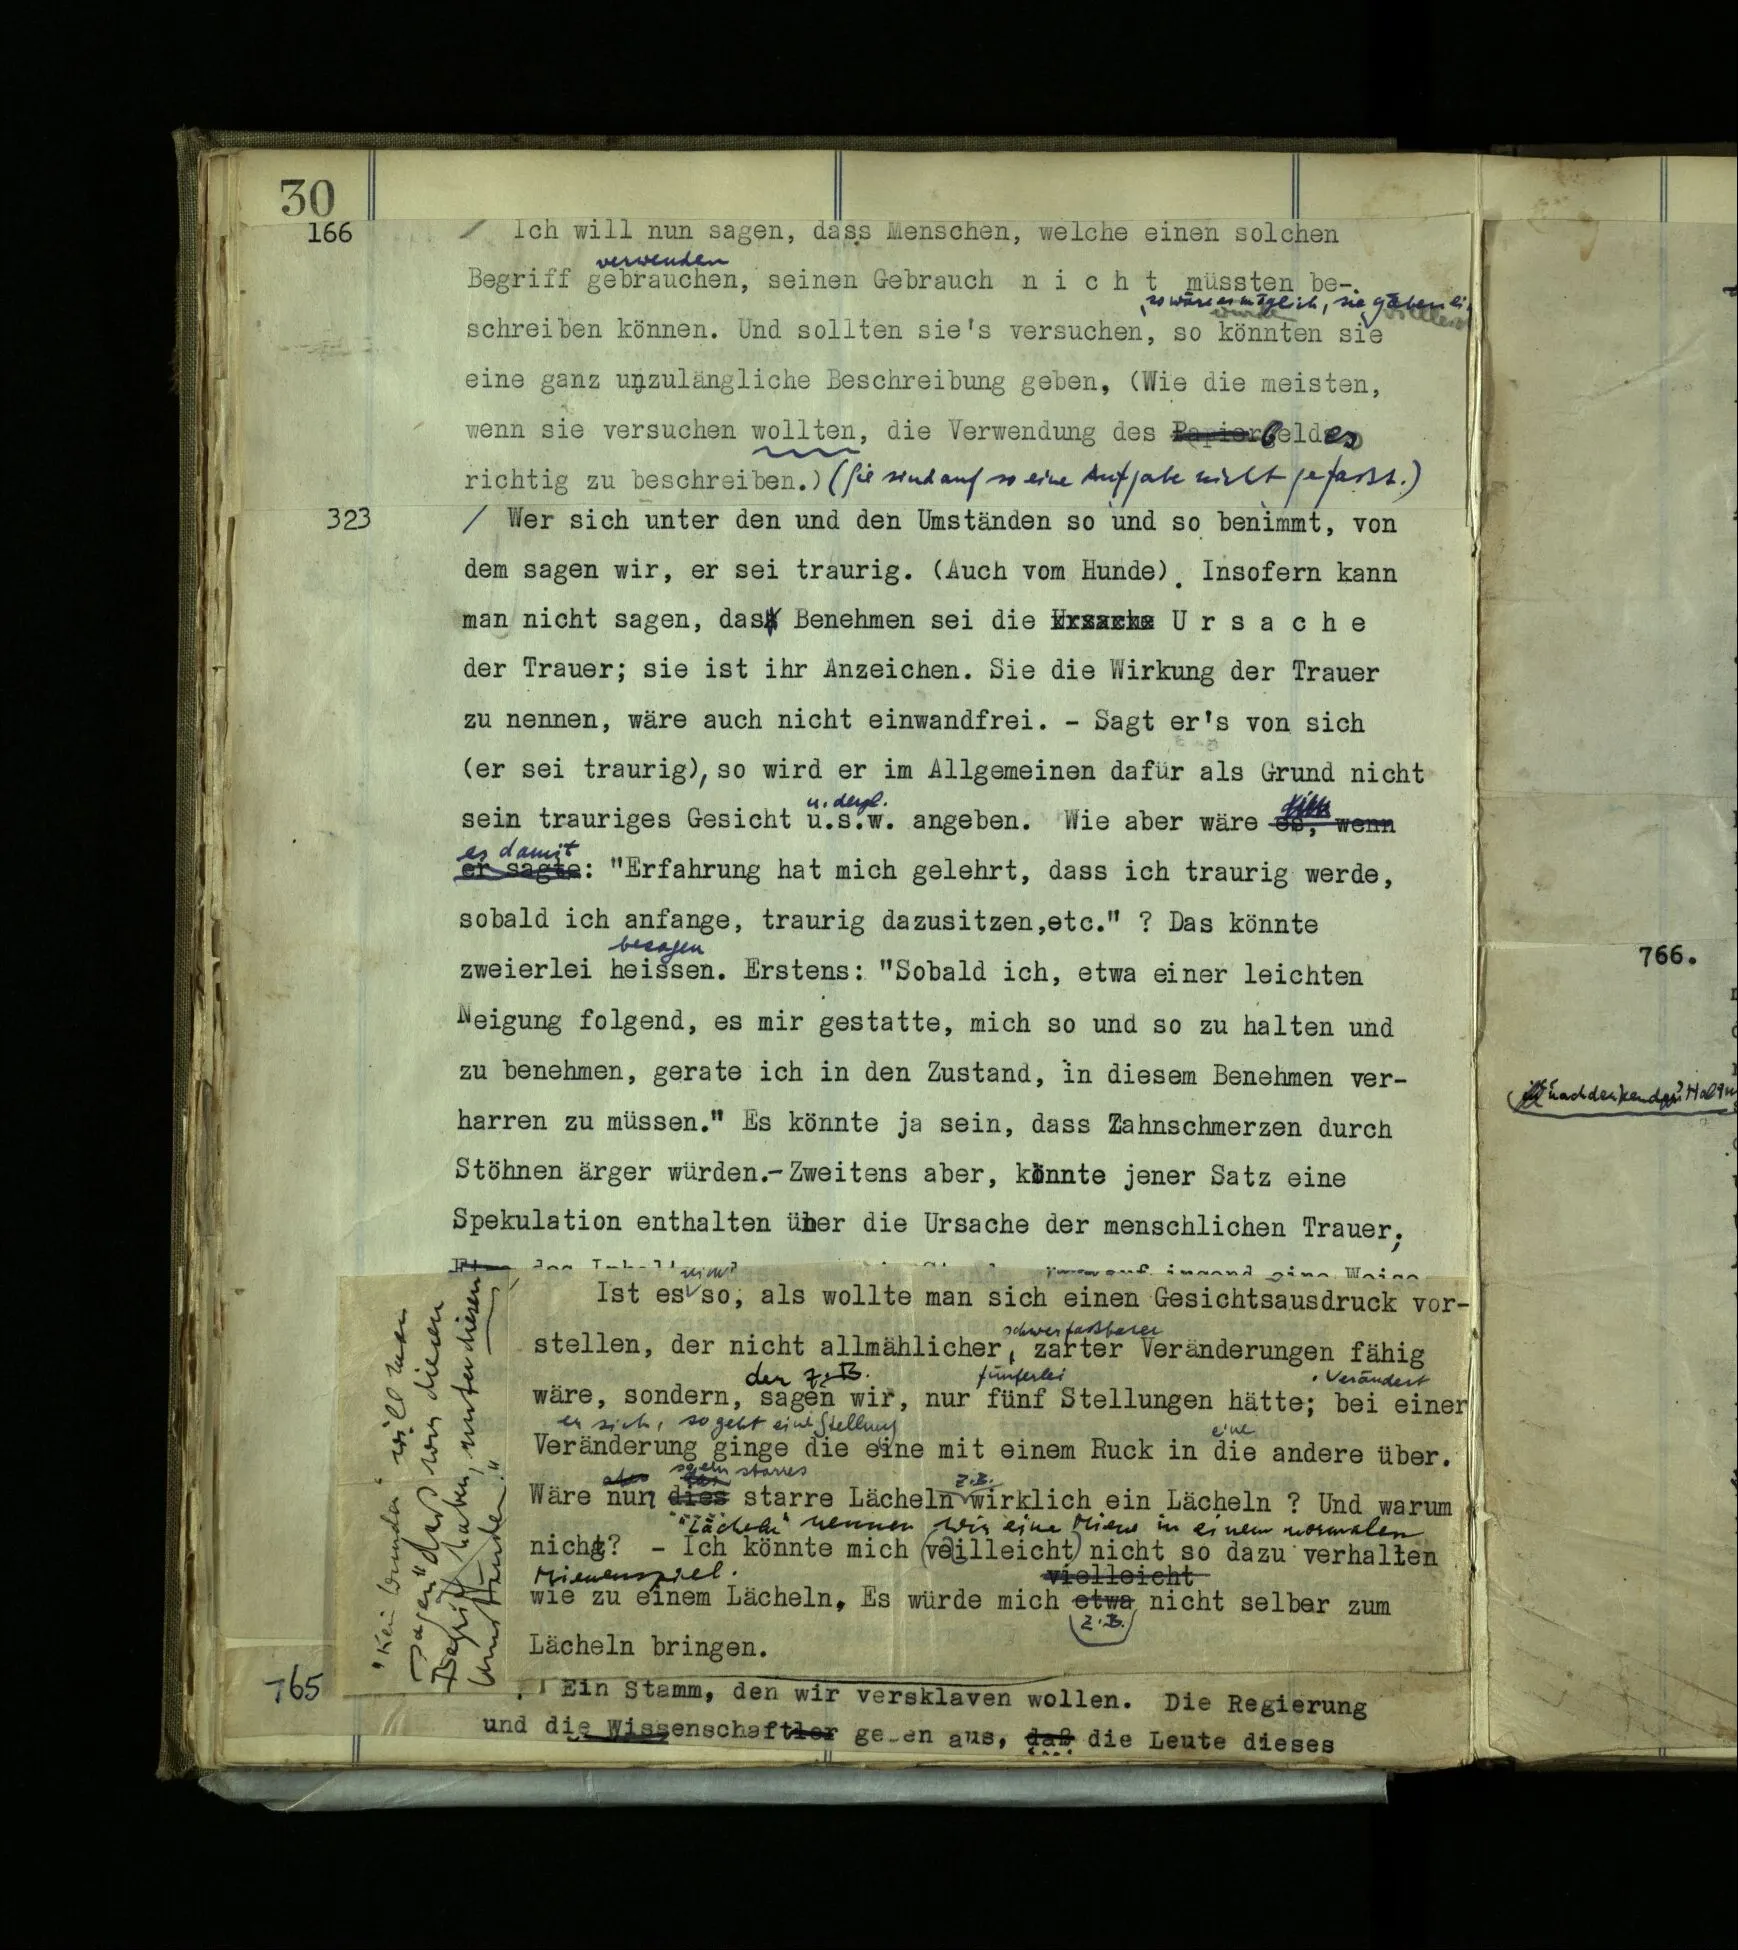 30
166
/ Ich will nun sagen, dass Menschen, welche einen solchen
verwenden
Begriff gebrauchen, seinen Gebrauch n i c h t müssten be-
so wäre es möglich, sie gäben
schreiben können. Und sollten sie's versuchen, so könnten sie
eine ganz unzulängliche Beschreibung geben, (Wie die meisten,
wenn sie versuchen wollten, die Verwendung des Papiergeldes
richtig zu beschreiben.) (Sie sind auf so eine Aufgabe nicht gefasst.)
323
/ Wer sich unter den und den Umständen so und so benimmt, von
dem sagen wir, er sei traurig. (Auch vom Hunde). Insofern kann
man nicht sagen, das Benehmen sei die Ursache U r s a c h e
der Trauer; sie ist ihr Anzeichen. Sie die Wirkung der Trauer
zu nennen, wäre auch nicht einwandfrei. - Sagt er's von sich
(er sei traurig), so wird er im Allgemeinen dafür als Grund nicht
u. dergl.
sein trauriges Gesicht u.s.w. angeben. Wie aber wäre es, wenn
es damit
er sagte: "Erfahrung hat mich gelehrt, dass ich traurig werde,
sobald ich anfange, traurig dazusitzen,etc." ? Das könnte
besagen
zweierlei heissen. Erstens: "Sobald ich, etwa einer leichten
Neigung folgend, es mir gestatte, mich so und so zu halten und
zu benehmen, gerate ich in den Zustand, in diesem Benehmen ver-
harren zu müssen." Es könnte ja sein, dass Zahnschmerzen durch
Stöhnen ärger würden.- Zweitens aber, könnte jener Satz eine
Spekulation enthalten über die Ursache der menschlichen Trauer;
"Kein Wunder" will man
sagen "dass wir diesen
Begriff haben, unter diesen
Umständen."
nicht
Ist es so, als wollte man sich einen Gesichtsausdruck vor-
schwer fassbarer
stellen, der nicht allmählicher, zarter Veränderungen fähig
der z.B. fünferlei verändert
wäre, sondern, sagen wir, nur fünf Stellungen hätte; bei einer
er sich, so geht eine Stellung eine
Veränderung ginge die eine mit einem Ruck in die andere über.
so ein starres z.B.
Wäre nun dies starre Lächeln wirklich ein Lächeln ? Und warum
"Lächeln" nennen wir eine Miene in einem normalen
nicht? - Ich könnte mich (veilleicht) nicht so dazu verhalten
Mienenspiel. vielleicht
wie zu einem Lächeln. Es würde mich etwa nicht selber zum
z.B.
Lächeln bringen.
765
Ein Stamm, den wir versklaven wollen. Die Regierung
und die Wissenschaftler geben aus, daß die Leute dieses
766.